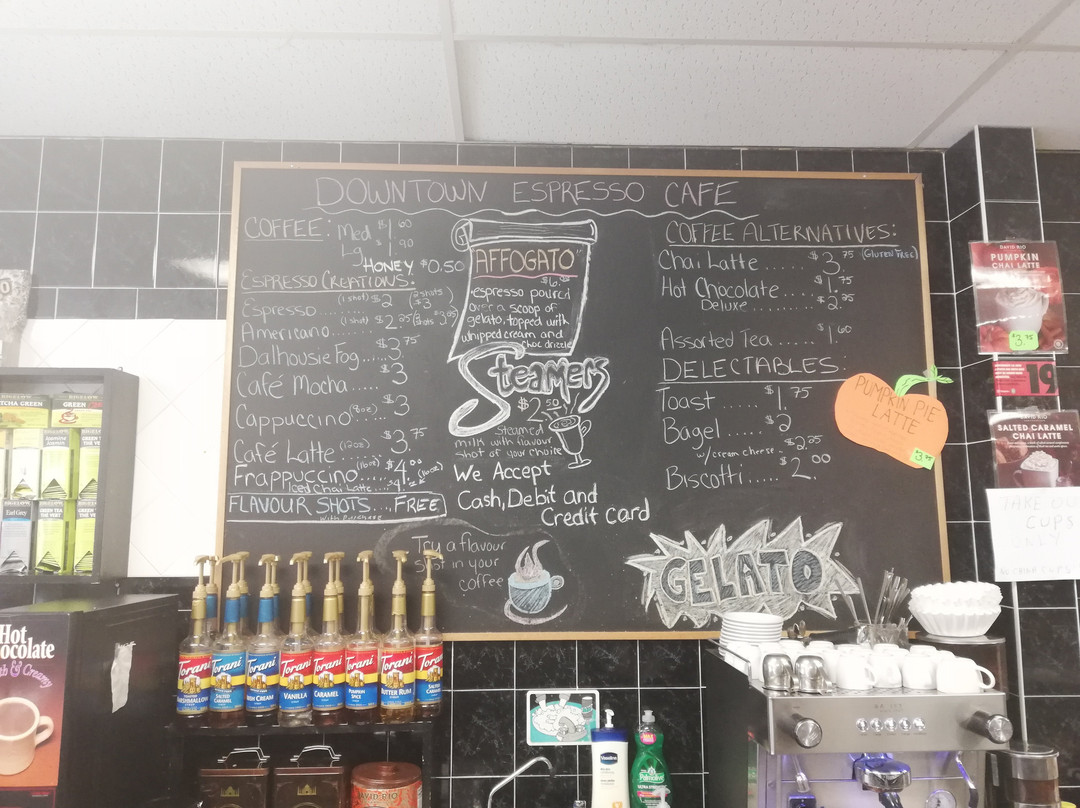 DOWNTOWN ESPRESSO CAFE
COFFEE: Med $1.60
Lg $1.90
HONEY $0.50
ESPRESSO CREATIONS:
Espresso...... (1 shot) $2 (2 shots) $3
Americano...... (1 shot) $2.25
Dalhousie Fog...... $3.75
Café Mocha..... $3
Cappuccino (8oz) $3
Café Latte (12oz) .... $3.75
Frappuccino (16oz) $4.00
Iced Chai Latte....
FLAVOUR SHOTS....FREE
with Purchase
AFFOGATO
espresso poured
over a scoop of
gelato, topped with
whipped cream and
choc drizzle
Steamers
$2.50
Steamed
milk with flavour
shot of your choice
We Accept
Cash, Debit and
Credit card
Try a flavour
shot in your
coffee
COFFEE ALTERNATIVES:
Chai Latte..... $3.75 (Gluten Free)
Hot Chocolate ..... $1.75
Deluxe......... $2.25
Assorted Tea ...... $1.60
DELECTABLES:
Toast .... $1.75
Bagel ..... $2
w/cream cheese
Biscotti..... $2.00
GELATO
PUMPKIN PIE
LATTE
$3.75
DAVID RIO
PUMPKIN
CHAI LATTE
$3.75
19
SALTED CARAMEL
CHAI LATTE
TAKE OUT
CUPS
ONLY
GREEN
Earl Grey
Hot
Torani
Torani
Torani
Torani
Torani
Torani
Torani
Torani
SALTED CARAMEL
VANILLA
CARAMEL
PUMPKIN SPICE
BUTTER RUM
Vaseline
Palmolive